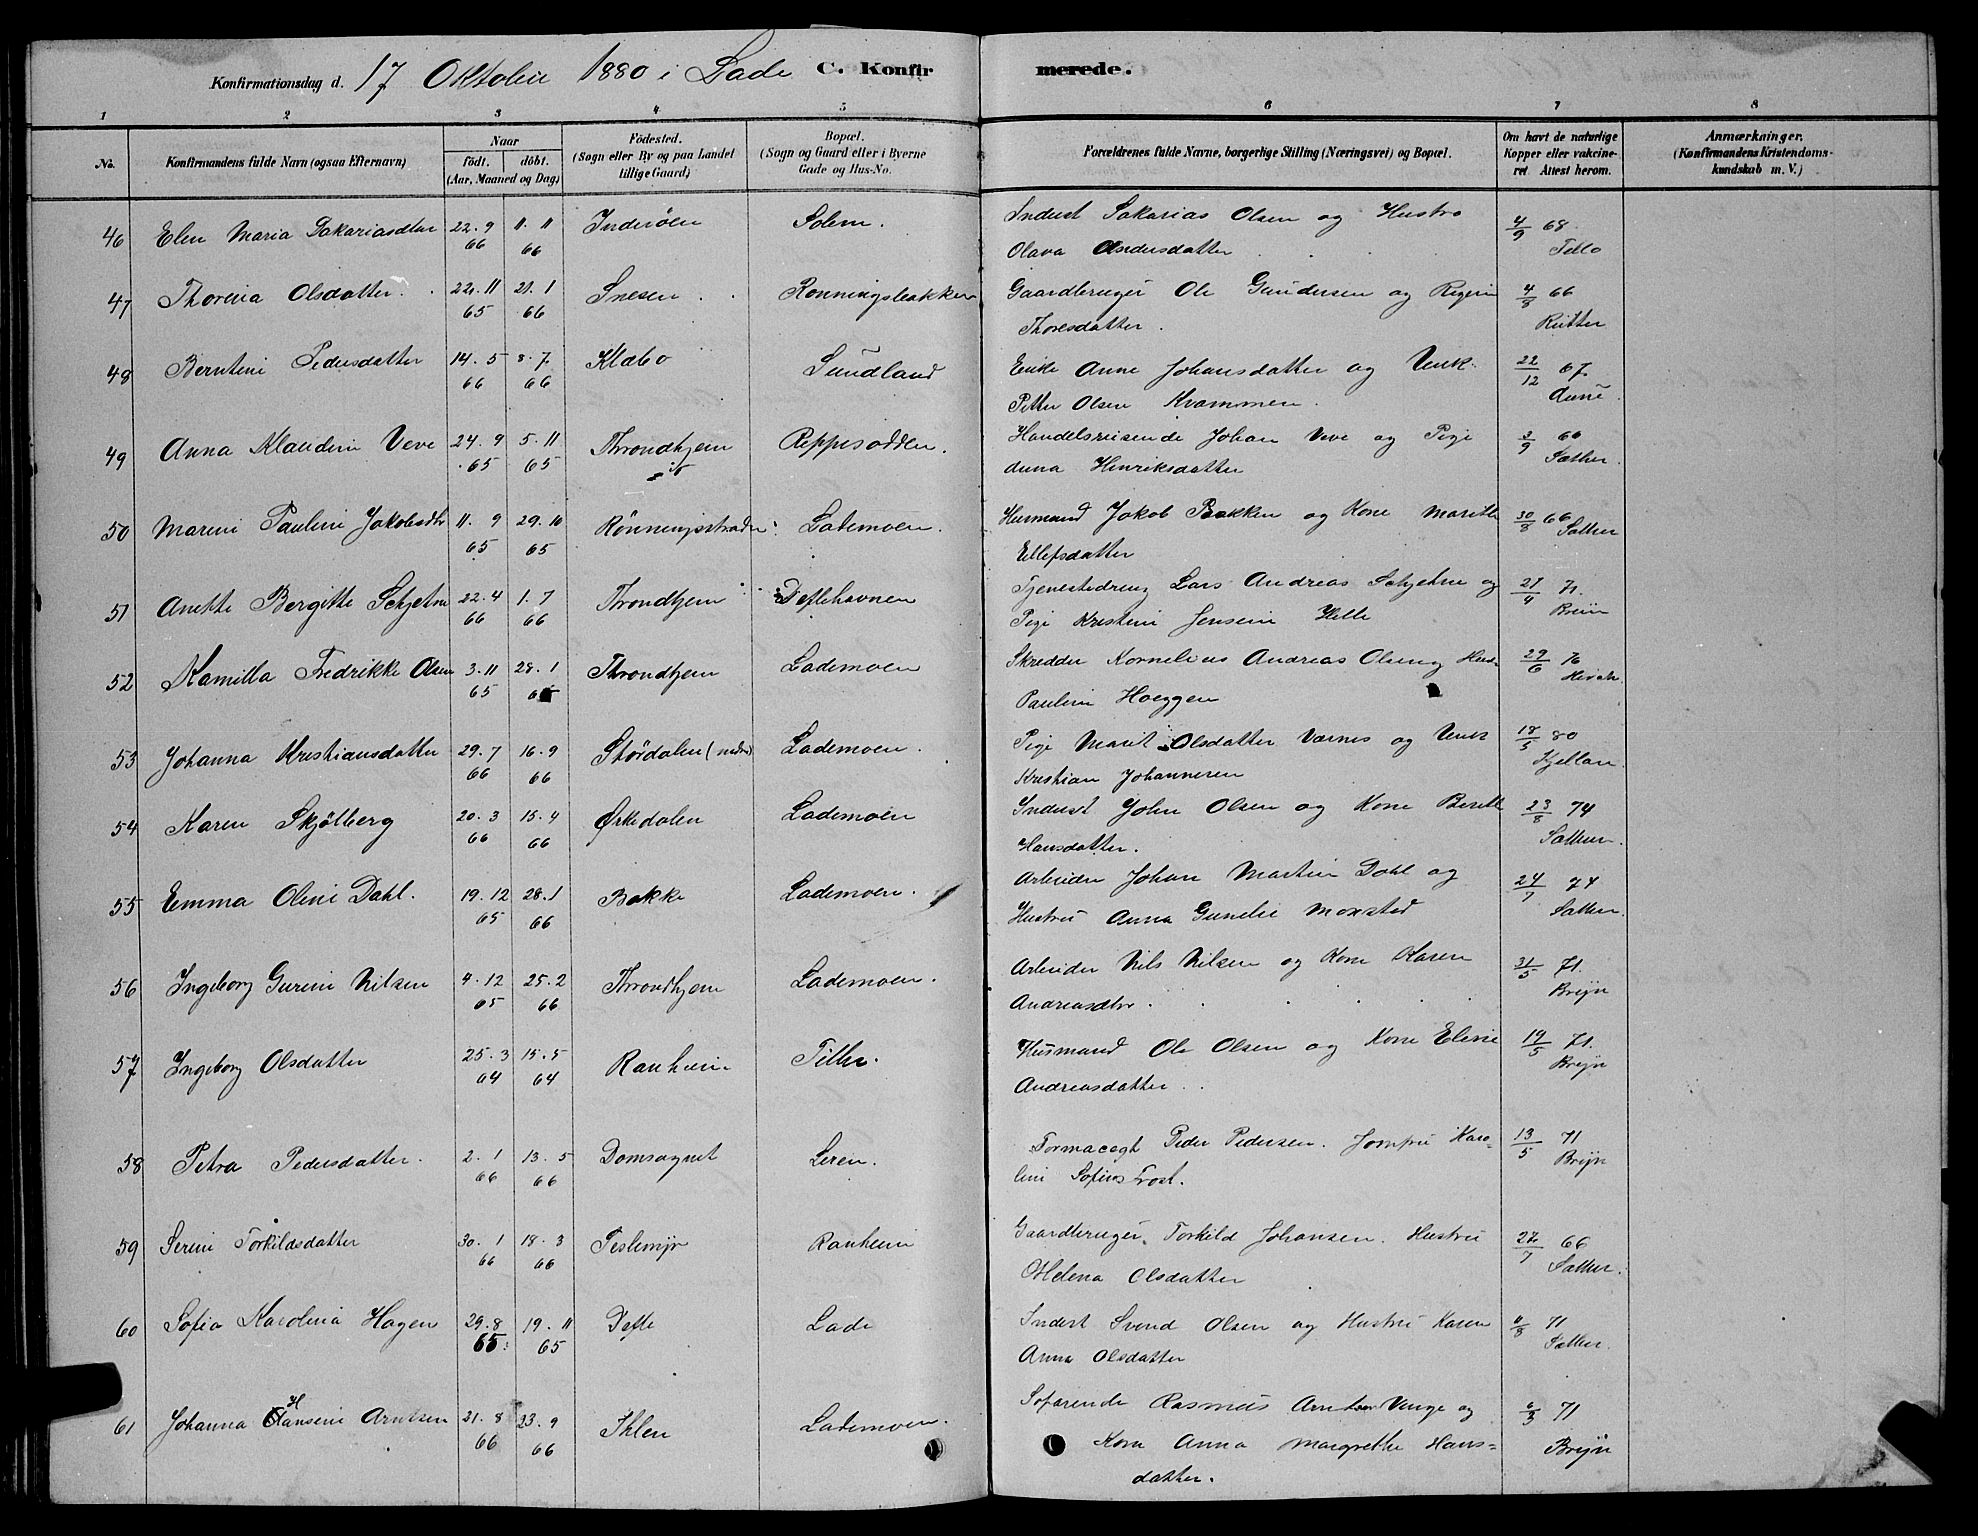 Konfirmationsdag d. 17 Oktober 1880 i Lade C. Konfirmerede.
1 2 3 4 5 6 7 8
No. Konfirmandens fulde Navn (ogsaa Efternavn) Naar födt. döbt. (Aar, Maaned og Dag) Födested. (Sogn eller By og paa Landet tillige Gaard) Bopæl. (Sogn og Gaard eller i Byerne Gade og Hus-No. Forældrenes fulde Navne, borgerlige Stilling (Næringsvei) og Bopæl. Om havt de naturlige Kopper eller vakcineret Attest herom. Anmærkninger. (Konfirmandens Kristendomskundskab m. V.)
46 Elen Maria Sakariasdtter 22.9 66 11.11 66 Inderöen Solem. Inderst Sakarias Olsen og Hustro 4/9 68.
Olava Andersdatter Tello
47 Thorina Olsdatter. 22.11 65 21.1 66 Snesen Rönningsbakken Gaardbruger Ole Gundersen og Regine 4/8 66
Thoresdatter. Rutter
48 Berntine Pedersdatter 14.5 66 8.7 66 Klæbo Sundland Enke Anne Johansdatter og Unk. 22/12 67.
Petter Olsen Kvammen. Aune
49 Anna Klaudine Veve 24.9 65 5.11 65 Throndhjem Reppesodden. Handelsreisende Johan Veve og Pige 3/9 66
Anna Henriksdatter Sæther.
50 Marine Pauline Jakobsdtr 11.9 65 29.10 65 Rönningsstraden Lademoen. Husmand Jakob Bakken og Kone Marette 30/8 66
Ellefsdatter Sæther
51 Anette Bergitte Schjetne 22.4 66 1.7 66 Throndhjem Deflehavnen Tjenestedreng Lars Andreas Schjetne og 21/4 71.
Pige Kristine Jensine Helle Breiin
52 Kamilla Fredrikke Olsen 3.11 65 28.1 Throndhjem Lademoen Skredder Kornelius Andreas Olsen og Hus- 29/6 76
Pauline Hoeggen
53 Johanna Kristiansdatter 29.7 66 16.9 66 Stördalen (nedre) Lademoen. Pige Marit Olsdatter Værnes og Unk 18/5 80
Kristian Johannesen Kjellan.
54 Karen Skjölberg 20.3 66 15.4 66 Ørkedalen Lademoen Inderst John Olsen og Kone Berette 23/8 74
Hansdatter. Sæther.
55 Emma Oline Dahl. 19.12 65 28.1 66 Bakke Lademoen. Arbeider Johan Martin Dahl og 24/7 74
Hustru Anna Gunelie Moxsted Sæther.
56 Ingeborg Gurine Nilsen 4.12 65 25.2 66 Throndhjem Lademoen. Arbeider Nils Nilsen og Kone Karen 31/5 71.
Andreasdtr. Breijn
57 Ingeborg Olsdatter 25.3 64 15.5 64 Ranheim Tiller. Husmand Ole Olsen og Kone Eline 19/5 71.
Andreasdatter Breijn
58 Petra Pedersdatter. 2.1 66 13.5 66 Domsognet Leren. Formaeegt Peder Pedersen. Jomfru Karo- 13/5 71
line Sofines Frost. Breijn
59 Serine Torkildsdatter 30.1 66 18.3 66 Peslemyr Ranheim Gaardbruger Torkild Johansen. Hustru 27/7 66
Helena Olsdatter Sæther.
60 Sofia Karolina Hagen 29.8 65 19.11 65 Defle Lade Inderst Svend Olsen og Hustru Karen 11/8 71
Anna Olsdatter Sæther.
61 Johanna Hansine Arntsen 21.8 66 23.9 66 Ihlen Lademoen. Söfarende Rasmus Arntsen Vinge og 6/3 71
Kone Anna Margrethe Hans= Breijn
datter.